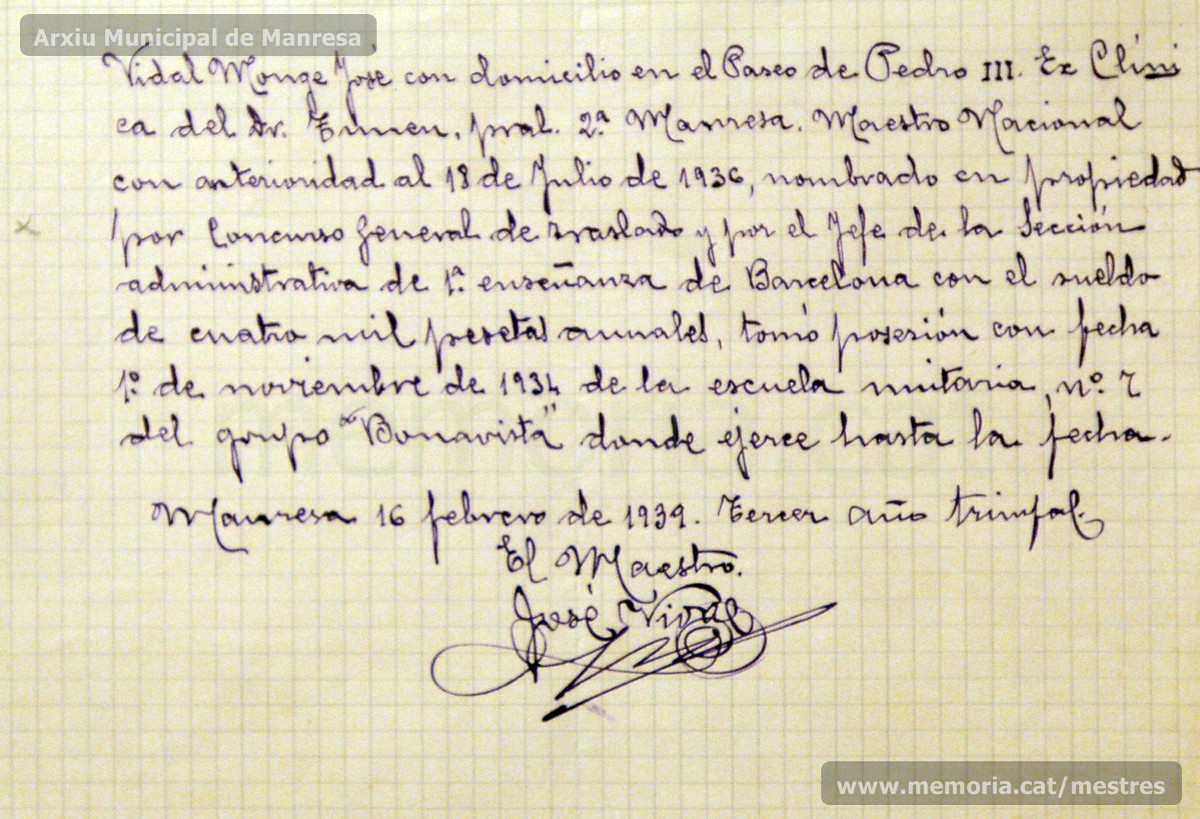 Arxiu Municipal de Manresa
Vidal Monge José con domicilio en el Paseo de Pedro III. Ex Clini
ca del Dr. pral. 2ª Manresa. Maestro Nacional
con anterioridad al 18 de Julio de 1936, nombrado en propiedad
por Concurso general de traslado y por el Jefe de la Sección
administrativa de 1ª enseñanza de Barcelona con el sueldo
de cuatro mil pesetas anuales, tomó posesión con fecha
1º de noviembre de 1934 de la escuela unitaria, nº 7
del grupo "Bonavista" donde ejerce hasta la fecha.
Manresa 16 febrero de 1939. Tercer año triunfal.
El Maestro.
José Vidal
www.memoria.cat/mestres